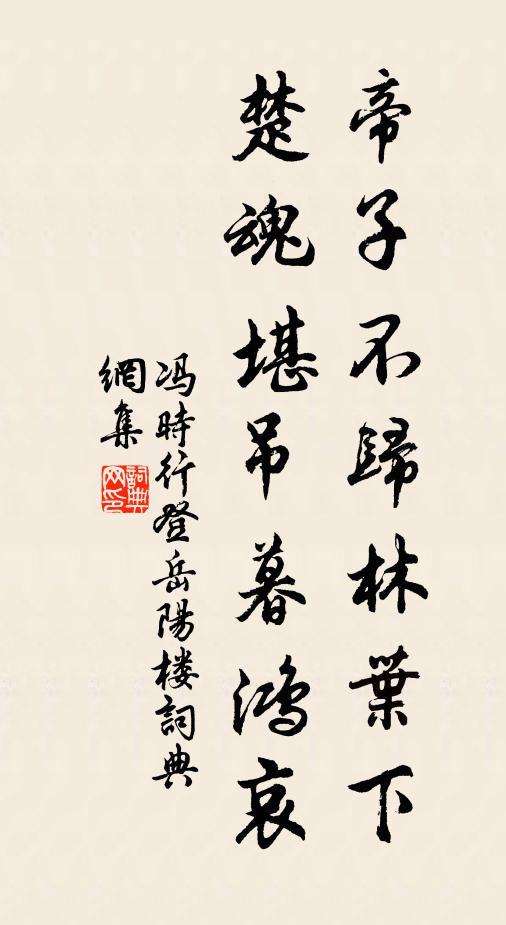 帝子不歸林葉下
楚魂堪吊暮鴻哀
冯時行登岳陽楼詞典
網集
詞典
网印